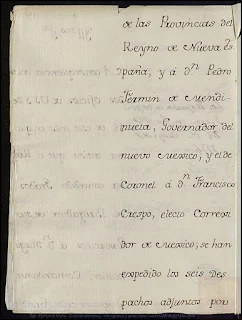 de las Provincias del
Reyno de Nueva Es
paña, y á dⁿ Pedro
Fermin de Mendi
nueta, Governador del
nuevo Mexico, y el de
Coronel á dⁿ Francisco
Crespo, electo Correxi
dor de Mexico, se han
expedido los seis Des
pachos adjuntos por